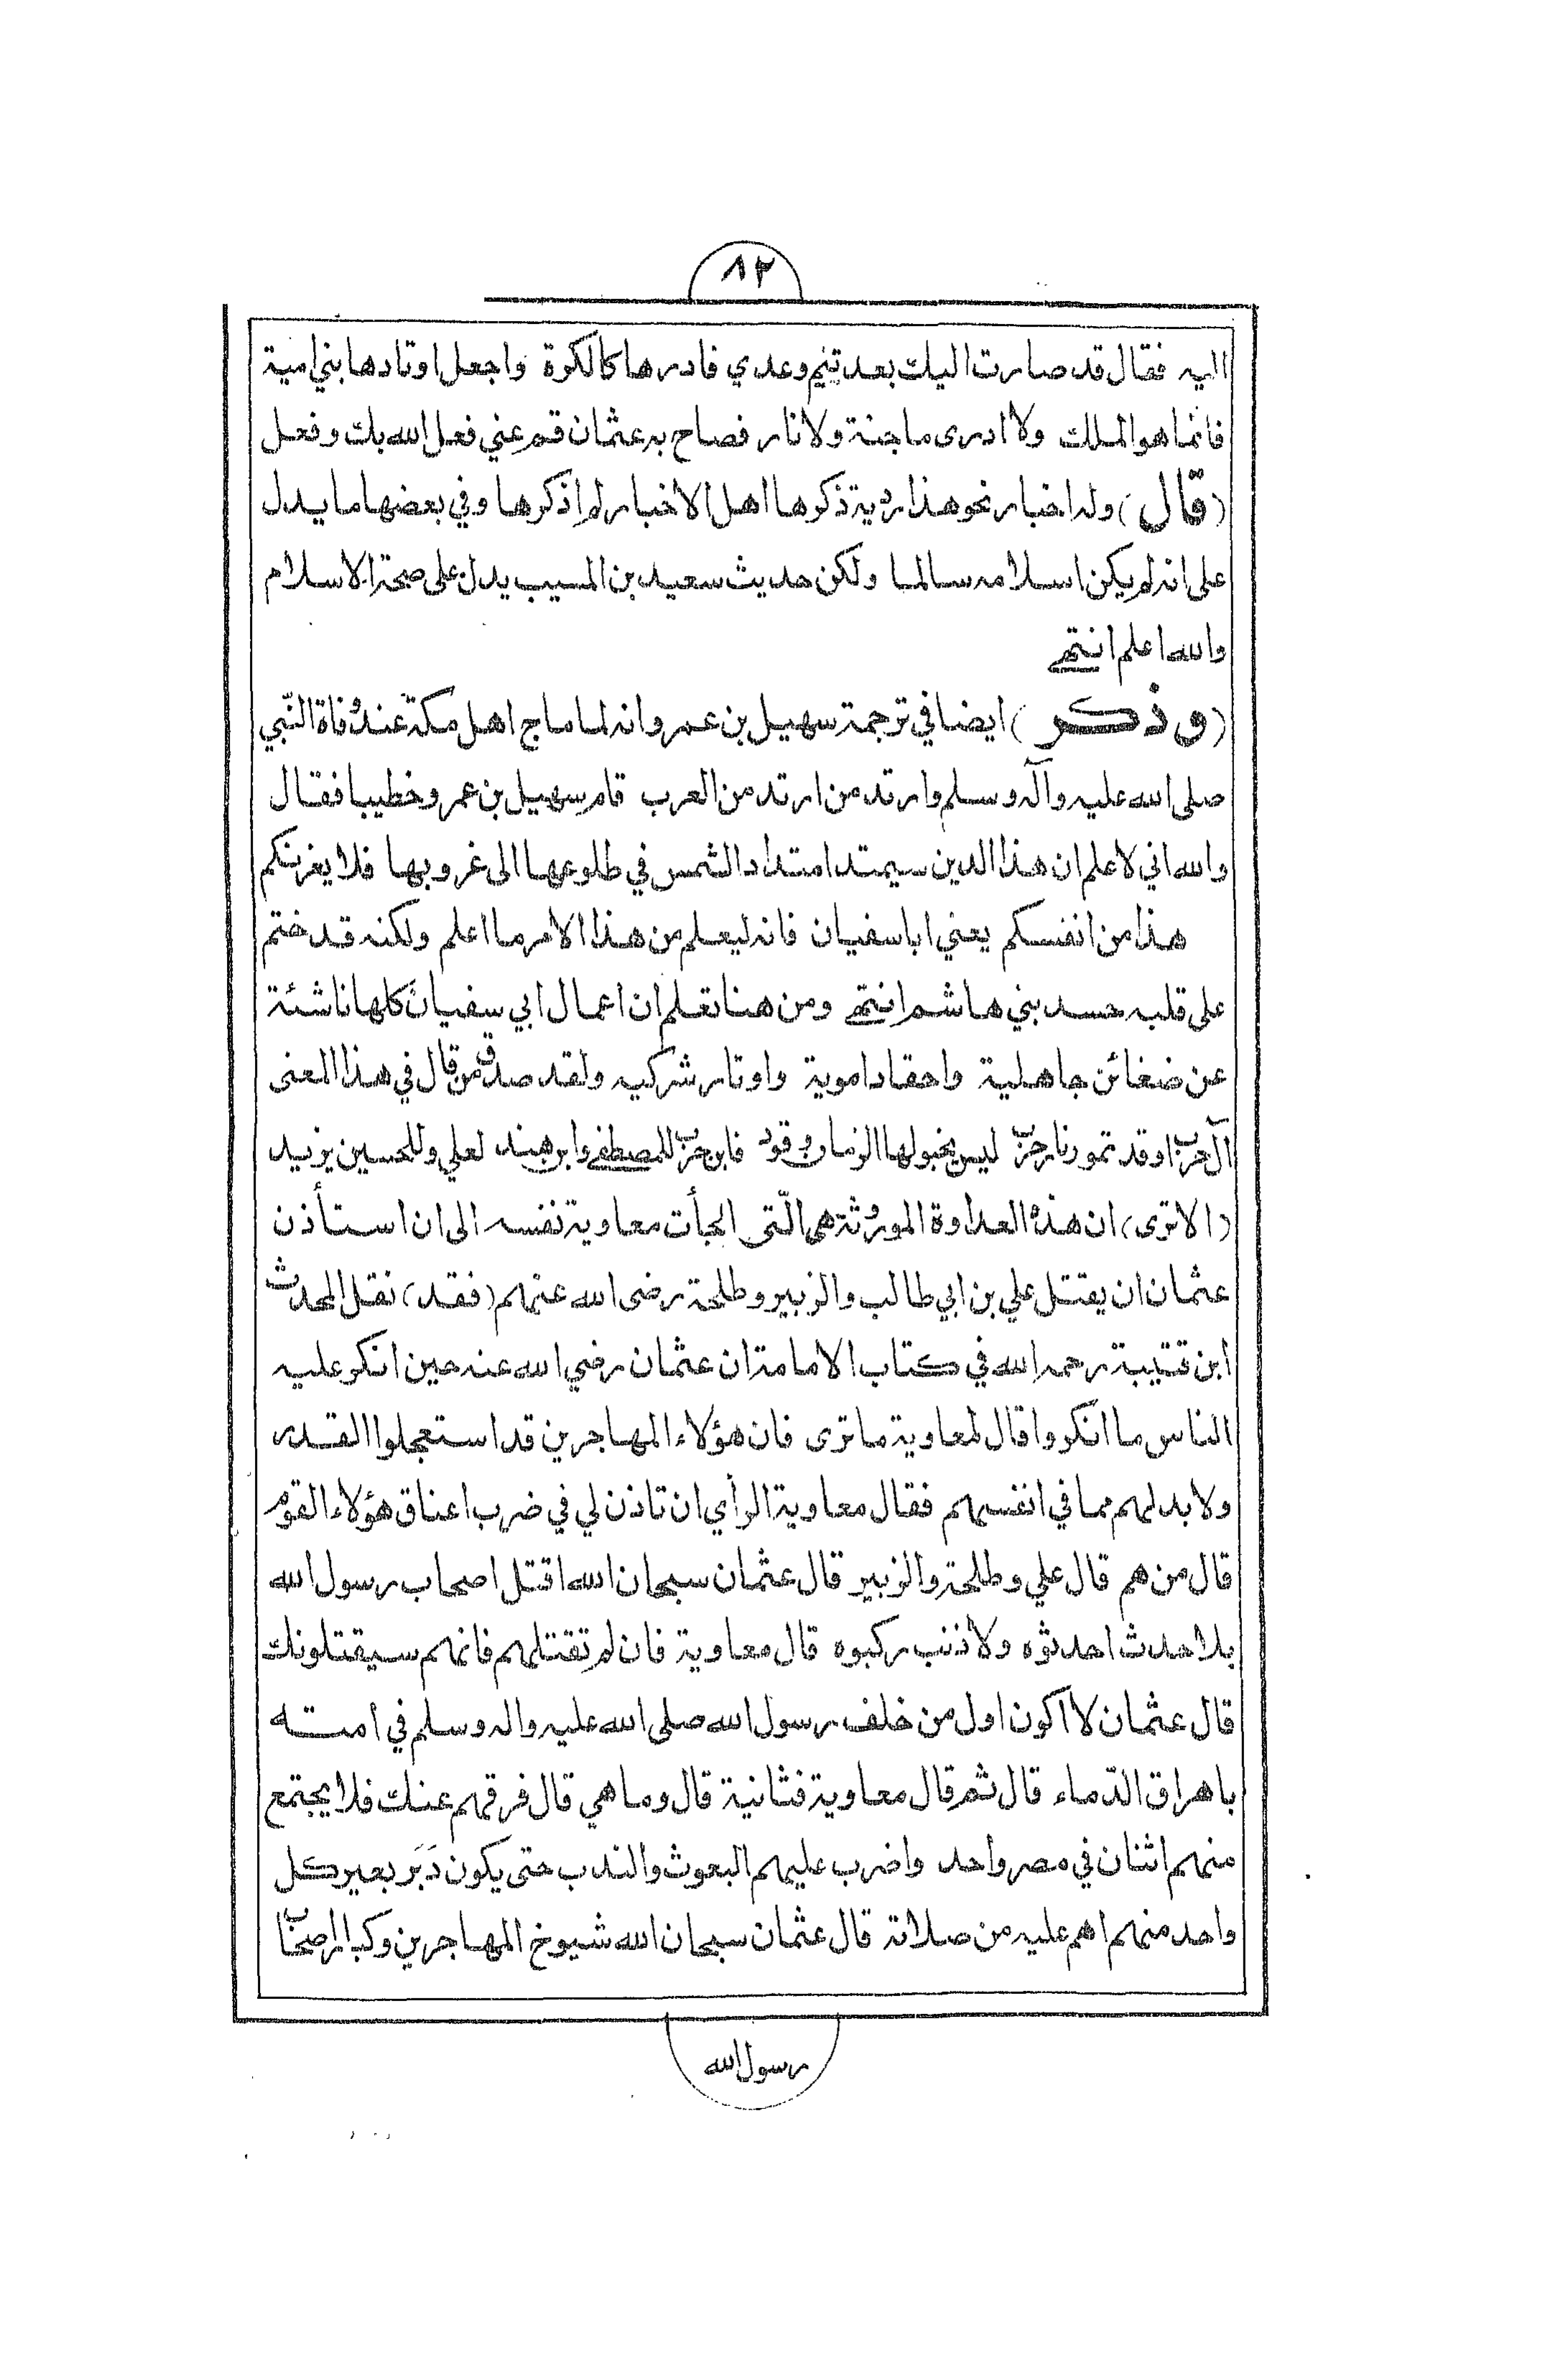 ٨٢
اليه فقال قد صارت اليك بعد تيم وعدي فادرها كالكرة واجعل اوتادها بني امية
فانما هو الملك ولا ادرى ما جنة ولا نار فصاح به عثمان قم عني فعل الله بك وفعل
(قال) وله اخبار نحو هذا ردية ذكرها اهل الاخبار لم اذكرها وفي بعضها ما يدل
على انه لم يكن اسلامه سالما ولكن حديث سعيد بن المسيب يدل على صحة الاسلام
والله اعلم انتهى
(وذكر) ايضا في ترجمة سهيل بن عمرو انه لما ماج اهل مكة عند وفاة النّبي
صلى الله عليه وآله وسلم وارتد من ارتد من العرب قام سهيل بن عمرو خطيبا فقال
والله اني لاعلم ان هذا الدين سيمتد امتداد الشمس في طلوعها الى غروبها فلا يغرنكم
هذا من انفسكم يعني ابا سفيان فانه ليعلم من هذا الامر ما اعلم ولكنه قد ختم
على قلبه حسد بني هاشم انتهى ومن هنا تعلم ان اعمال ابي سفيان كلها ناشئة
عن ضغائن جاهلية واحقاد اموية واوتار شركيه ولقد صدق من قال في هذا المعنى
آل حرب اوقدتمو نار حرب ليس يخبو لها الزمان وقود فابن حرب للمصطفى وابن هند لعلي وللحسين يزيد
(الا ترى) ان هذه العداوة الموروثة هي الّتى الجأت معاوية نفسه الى ان استأذن
عثمان ان يقتل علي بن ابي طالب والزبير وطلحة رضى الله عنهم (فقد) نقل المحدث
ابن قتيبة رحمه الله في كتاب الامامة ان عثمان رضي الله عنه حين انكر عليه
الناس ما انكروا قال لمعاوية ما ترى فان هؤلاء المهاجرين قد استعجلوا القدر
ولا بد لهم مما في انفسهم فقال معاوية الرأي ان تاذن لي في ضرب اعناق هؤلاء القوم
قال من هم قال علي وطلحة والزبير قال عثمان سبحان الله اقتل اصحاب رسول الله
بلا حدث احدثوه ولا ذنب ركبوه قال معاوية فان لم تقتلهم فانهم سيقتلونك
قال عثمان لا اكون اول من خلف رسول الله صلى الله عليه واله وسلم في امته
باهراق الدّماء قال ثم قال معاوية فثانية قال وما هي قال فرقهم عنك فلا يجتمع
منهم اثنان في مصر واحد واضرب عليهم البعوث والندب حتى يكون دَبَر بعير كل
واحد منهم اهم عليه من صلاته قال عثمان سبحان الله شيوخ المهاجرين وكبار اصحاب
رسول الله